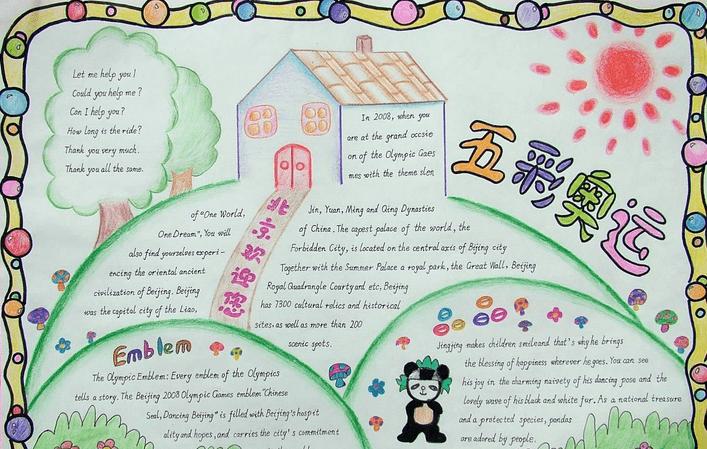 Let me help you!
Could you help me?
Can I help you?
How long is the ride?
Thank you very much.
Thank you all the same.
In 2008, when you
are at the grand occsie
on of the Olympic Gaes
mes with the theme slen
五彩奥运
北京欢迎您
of "One World,
One Dream", You will
also find yourselves experi-
encing the oriental ancient
civilization of Beijing. Beijing
was the capital city of the Liao,
Jin, Yuan, Ming and Qing Dynasties
of China. The capest palace of the world, the
Forbidden City, is located on the central axis of Bijing city
Together with the Summer Palace a royal park, the Great Wall, Beijing
Royal Quadrangle Courtyard etc, Beijing
has 7300 cultural relics and historical
sites, as well as more than 200
scenic spots.
Emblem
The Olympic Emblem: Every emblem of the Olympics
tells a story. The Beijing 2008 Olympic Games emblem "Chinese
Seal, Dancing Beijing" is filled with Beijing's hospit
ality and hopes, and carries the city's commitment
Jingjing makes children smileand that's why he brings
the blessing of happiness wherever he goes. You can see
his joy in the charming naivety of his dancing pose and the
lovely wave of his black and white fur. As a national treasure
and a protected species, pandas
are adored by people.